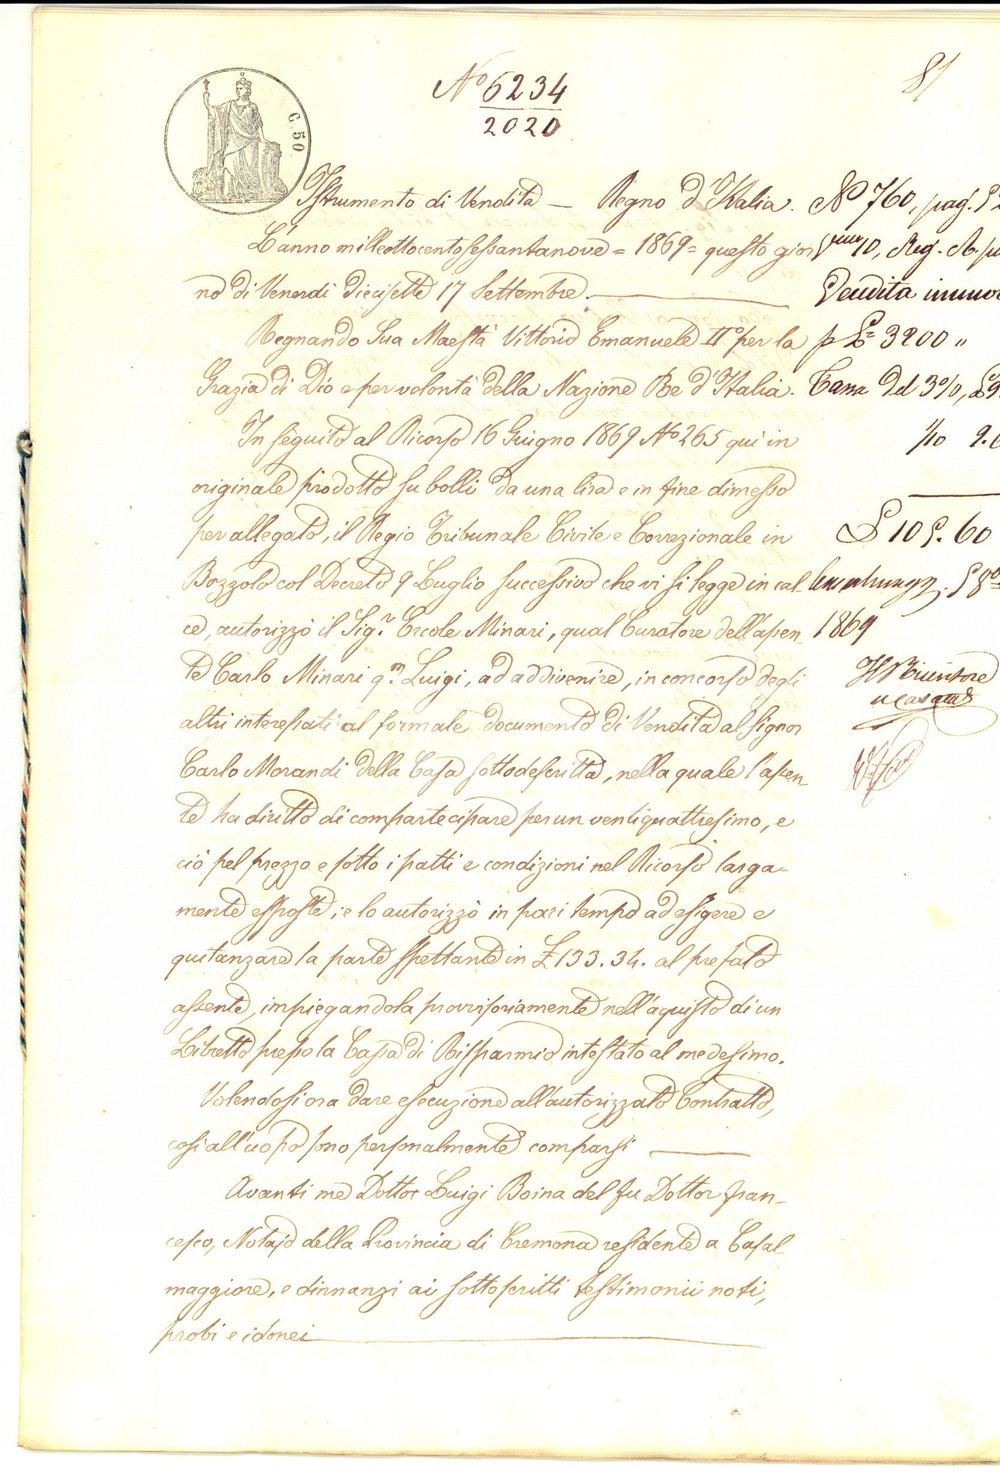 N.o 6234
2020
81
C. 50
Istrumento di Vendita — Regno d'Italia.
L'anno milleottocentosessantanove = 1869 = questo gior
no di Venerdì diecisette 17 Settembre.
Regnando Sua Maestà Vittorio Emanuele II.o per la
Grazia di Dio e per volontà della Nazione Re d'Italia.
In seguito al Ricorso 16 Giugno 1869 N.o 265 qui in
originale prodotto su bolli da una lira e in fine dimesso
per allegato, il Regio Tribunale Civile e Correzionale in
Bozzolo col Decreto 9 Luglio successivo che vi si legge in cal-
ce, autorizzò il Sig.r Ercole Minari, qual Curatore dell'assen-
te Carlo Minari q.m Luigi, ad addivenire, in concorso degli
altri interessati al formale documento di Vendita al signor
Carlo Morandi della Casa sottodescritta, nella quale l'assen
te ha diritto di compartecipare per un ventiquattresimo, e
ciò pel prezzo e sotto i patti e condizioni nel Ricorso larga-
mente esposte; e lo autorizzò in pari tempo ad esigere e
quitanzare la parte spettante in £ 133.34. al prefato
assente, impiegandola provvisoriamente nell'aquisto di un
Libretto presso la Cassa di Risparmio intestato al medesimo.
Volendosi ora dare esecuzione all'autorizzato Contratto,
così all'uopo sono personalmente comparsi
Avanti me Dottor Luigi Boina del fu Dottor Fran-
cesco, Notajo della Provincia di Cremona residente a Casal
maggiore, e dinnanzi ai sottoscritti testimonii noti,
probi e idonei
N.o 760, pag.
10, Reg.
Vendita immo
p £ 3200 "
Tassa del 3%, £
1/10 9.6
£ 105.60
1869
Il Ricevitore